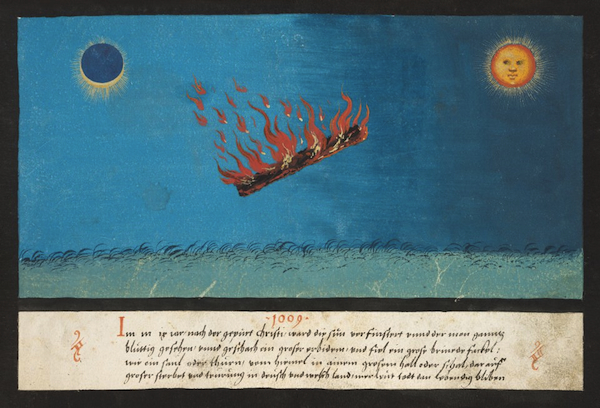 1009
Im m ix iar nach der gepurt christi, ward die sun verfinstert vnnd der mon ganntz
bluttig gesehen, vnnd geschach ein groser erdbidem, vnd fiel ein grose fackel:
wie ein saul oder thurm, vom himel in ainem grosem hall oder schal, dar auff
groser sterbet vnd teurung in deutsch vnd welsch land, mer leut todt dan lebendig bliben